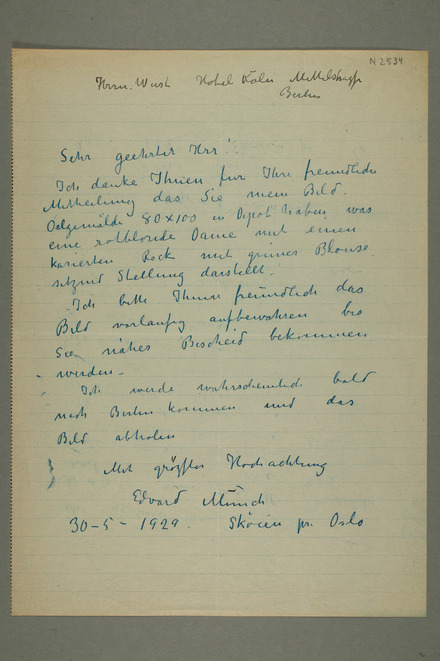 N 2534
Herrn. Wust Hotel Köln Mittelstrasse
Berlin
Sehr geehrter Herr!
Ich danke Ihnen für Ihre freundliche
Mittheilung das Sie mein Bild.
Oelgemälde 80×100 in Depot haben was
eine rotblonde Dame mit einen
karierten Rock mit grüner Blouse
sitzend Stellung darstellt.
Ich bitte Ihnen freundlich das
Bild vorlaufig aufbewahren bis
Sie näher Bescheid bekommen
werden–
Ich werde wahrscheinlich bald
nach Berlin kommen und das
Bild abholen
Mit grösster Hochachtung
Edvard Munch
30–5–1929. Skøien pr. Oslo